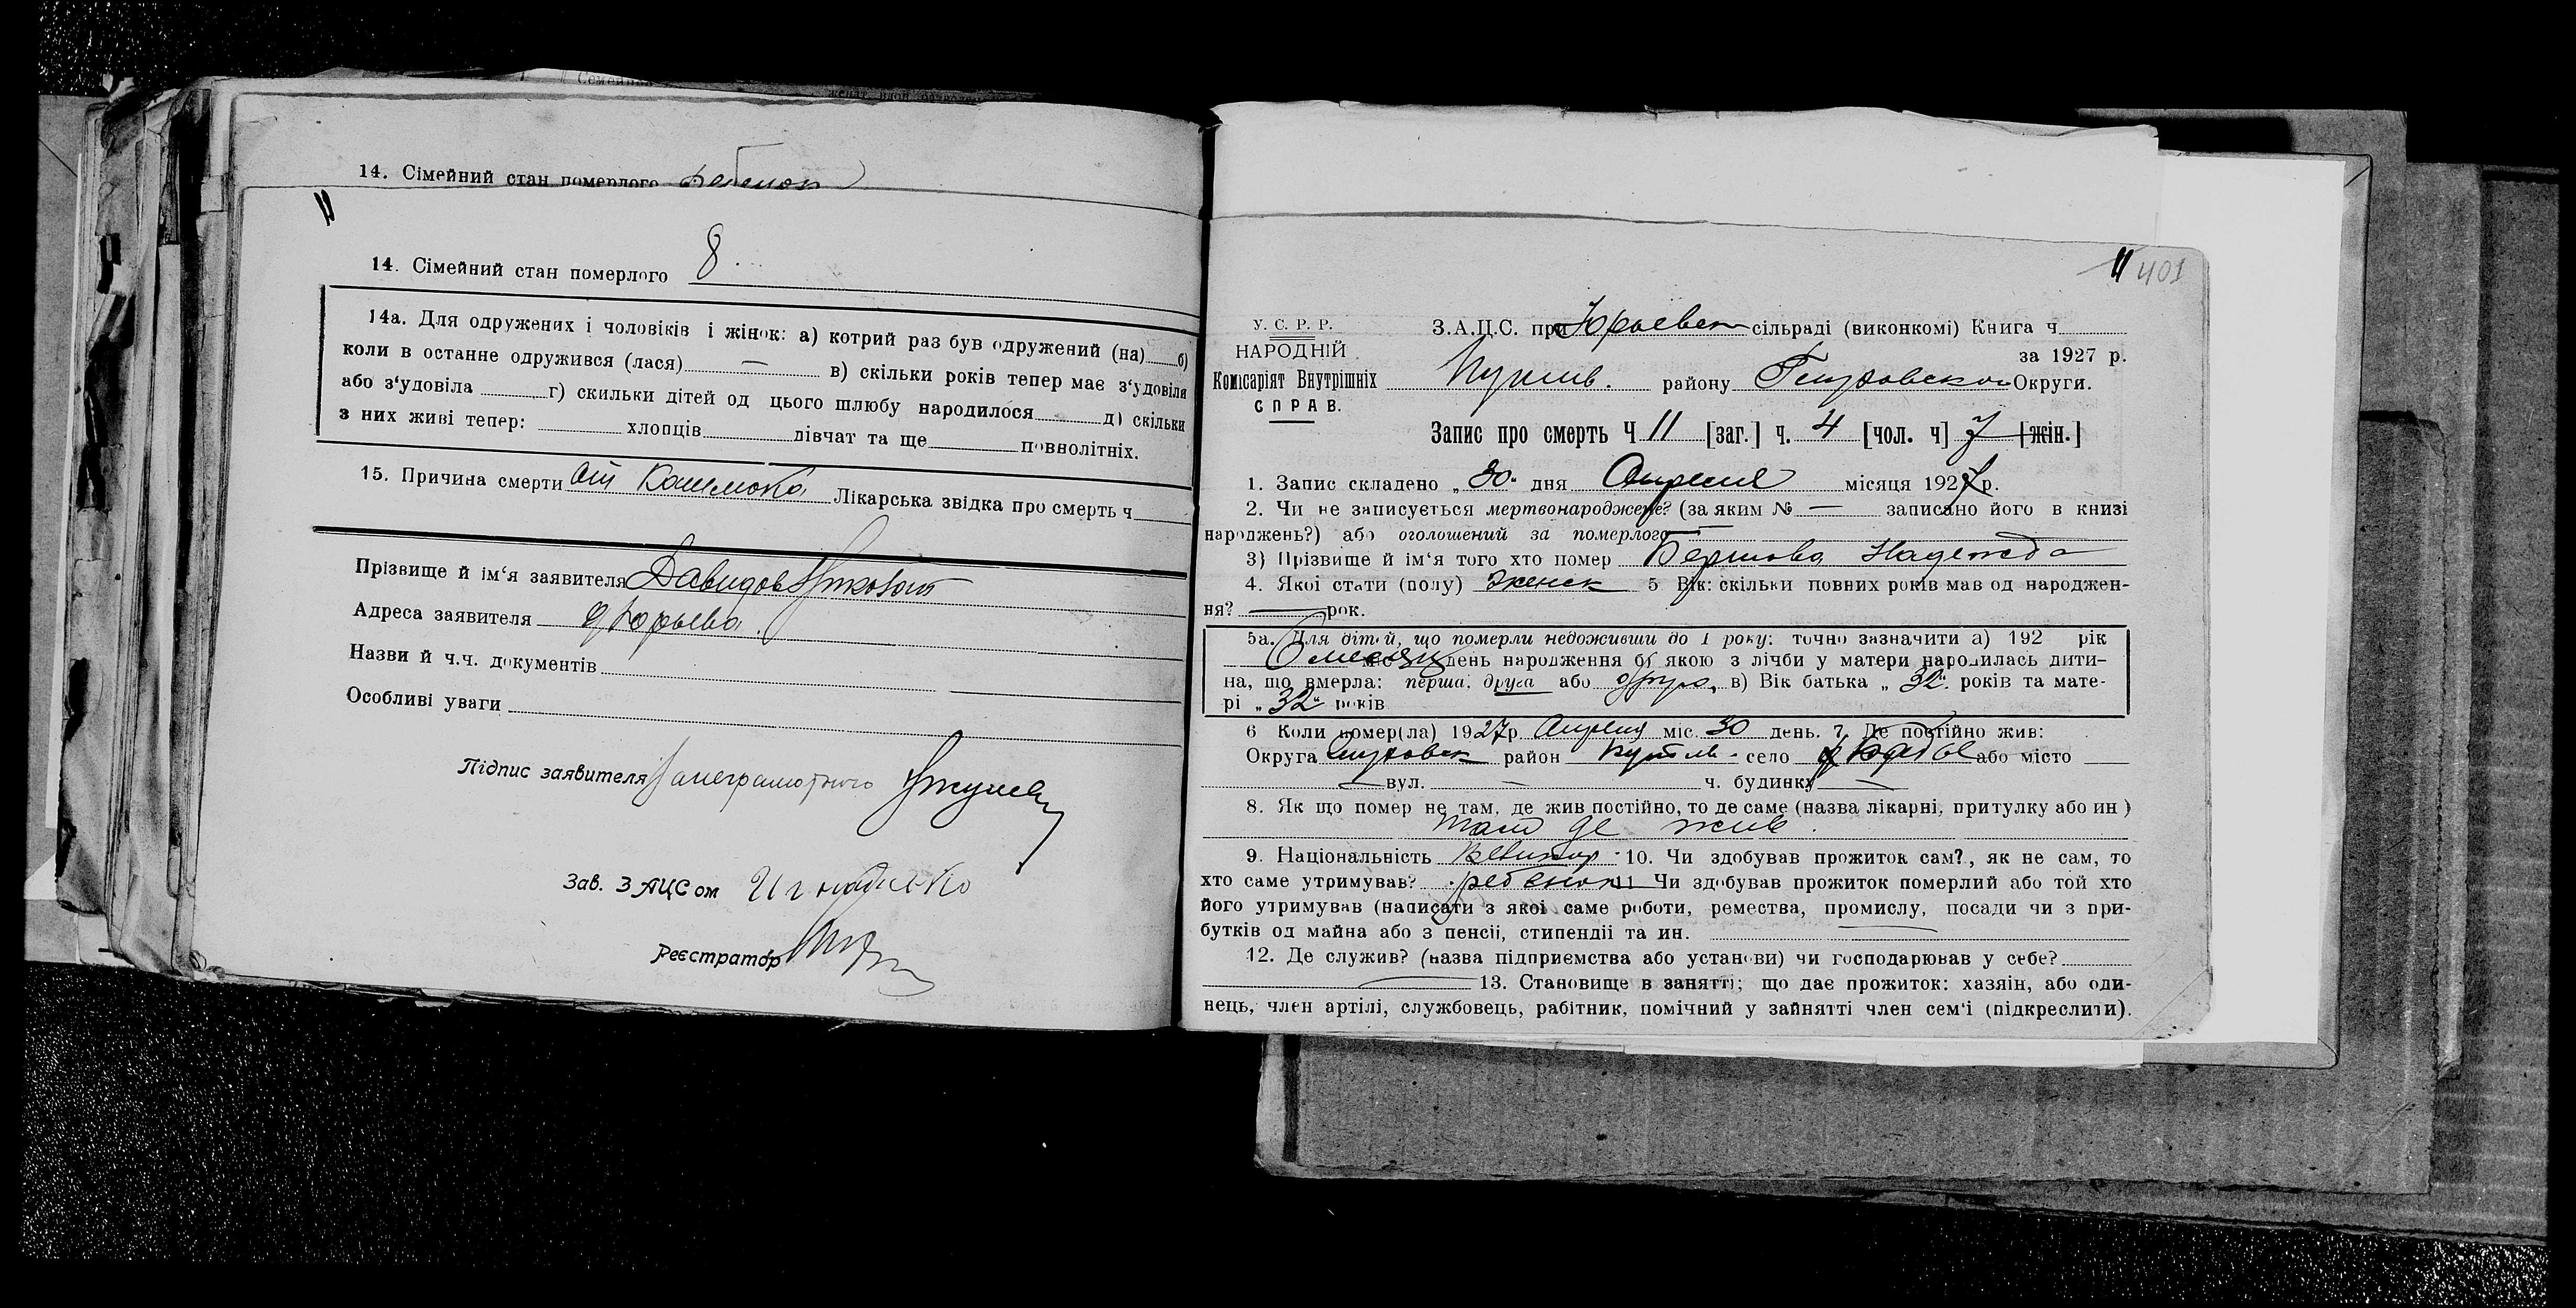 14. Сімейний стан померлого ребенок
11
14. Сімейний стан померлого 8.
14а. Для одружених і чоловіків і жінок: а) котрий раз був одружений (на) б)
коли в останне одружився (лася) — в) скільки років тепер має з‘удовіля
або з‘удовіла г) скильки дітей од цього шлюбу народилося д) скільки
з них живі тепер: хлопців дівчат та ще повнолітніх.
15. Причина смерти От Лікарська звідка про смерть ч
Прізвище й ім‘я заявителя Давидов
Адреса заявителя
Назви й ч.ч. документів
Особливі уваги
Підпис заявителя За неграмотного
Зав. ЗАЦСом Игнатенко
Реєстратор
11 401
У. С. Р. Р.
НАРОДНІЙ
Комісаріят Внутрішніх
СПРАВ.
З.А.Ц.С. при Юрьевск сільраді (виконкомі) Книга ч
за 1927 р.
Путив. району Глуховской Округи.
Запис про смерть Ч 11 [заг.] ч. 4 [чол. ч] 7 [жін.]
1. Запис складено „30“ дня Апреля місяця 1927 р.
2. Чи не записується мертвонароджене? (за яким № — записано його в книзі
народжень?) або оголошений за померлого —
3) Прізвище й ім‘я того хто помер Надежда
4. Якої стати (полу) женск 5 Вік: скільки повних років мав од народжен-
ня? — рок.
5а. Для дітей, що померли недоживши до 1 року: точно зазначити а) 192 рік
день народження б) якою з лічби у матери народилась дити-
на, що вмерла: перша, друга або друга, в) Вік батька „32“ років та мате-
рі „32“ років
6 Коли помер(ла) 1927 р. Апреля міс. 30 день. 7. Де постійно жив:
Округа Глуховск район Путивл. село або місто
— вул. — ч. будинку —
8. Як що помер не там, де жив постійно, то де саме (назва лікарні, притулку або ин)
там де жив.
9. Національність 10. Чи здобував прожиток сам?, як не сам, то
хто саме утримував? ребенок 11 Чи здобував прожиток померлий або той хто
його утримував (написати з якої саме роботи, ремества, промислу, посади чи з при-
бутків од майна або з пенсії, стипендії та ин.
12. Де служив? (назва підприємства або установи) чи господарював у себе?
13. Становище в занятті; що дає прожиток: хазяін, або оди-
нець, член артілі, службовець, рабітник, помічний у зайнятті член сем‘ї (підкреслити).